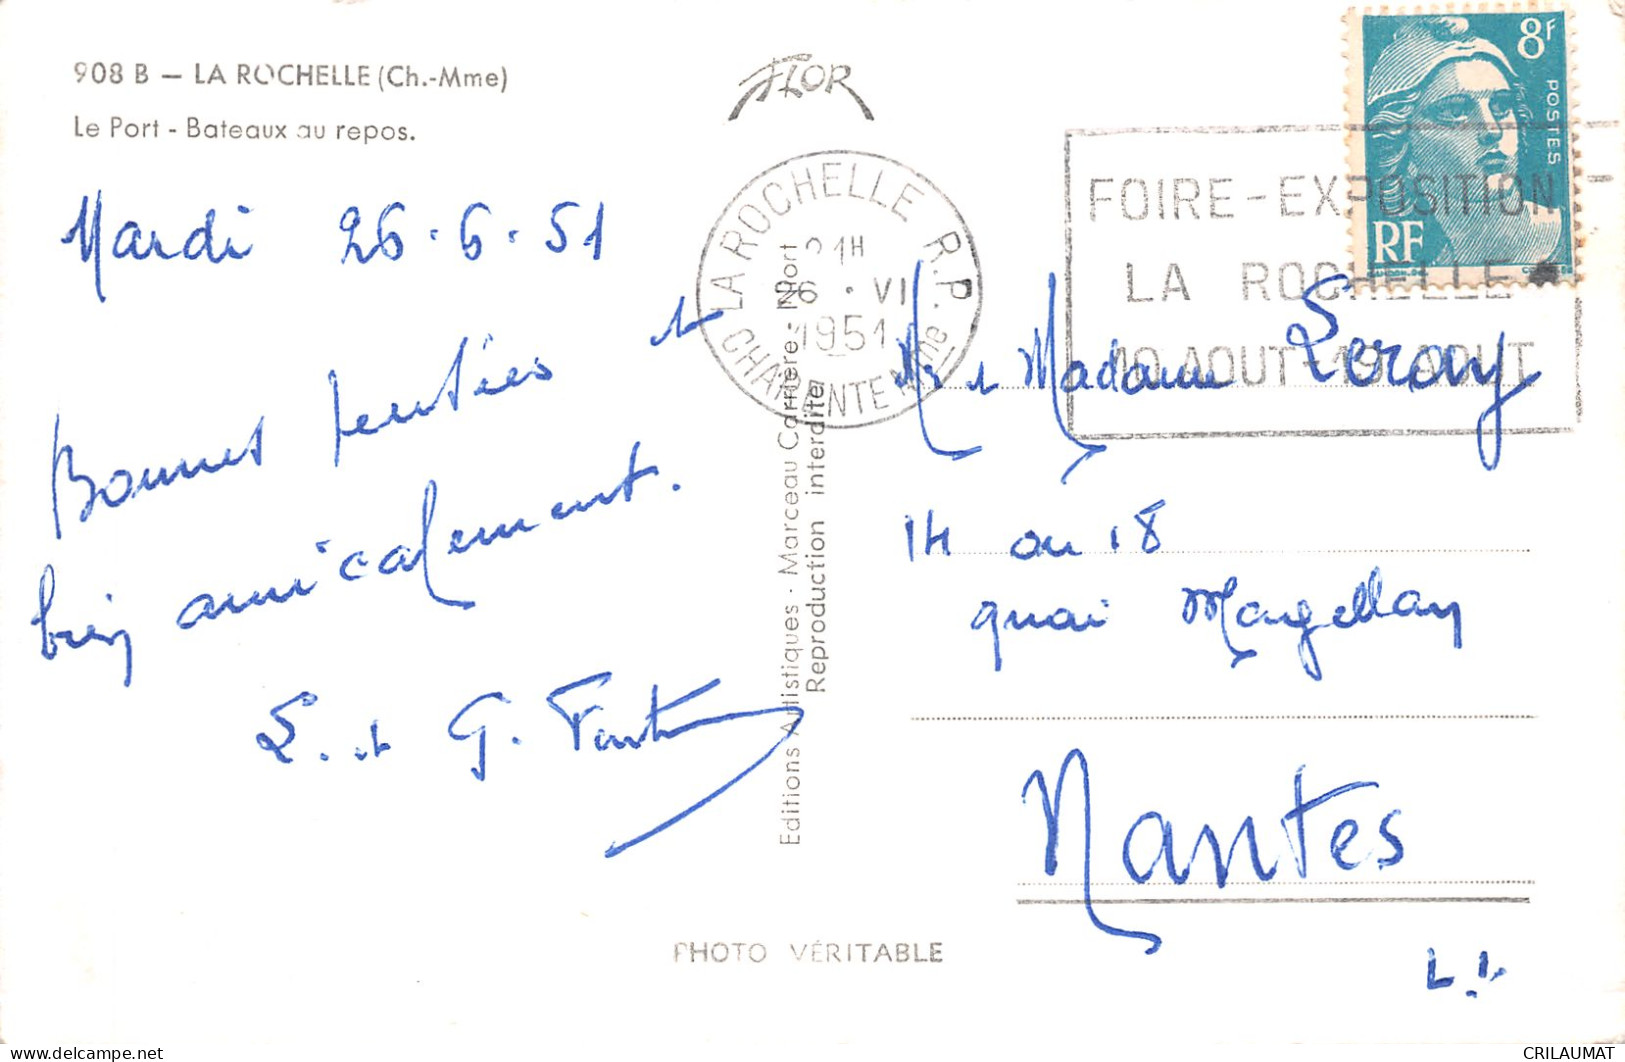 908 B – LA ROCHELLE (Ch.-Mme)
Le Port - Bateaux au repos.
FLOR
Mardi 26.6.51
Bonnes pensées et
bien amicalement.
L. et G.
Editions Artistiques - Marceau Carrière - Niort
Reproduction interdite
LA ROCHELLE R.P.
21H
26 · VI
1951
CHARENTE Mme
FOIRE-EXPOSITION
LA ROCHELLE
10 AOUT-19 AOUT
8F
POSTES
RF
Mr et Madame Leray
14 ou 18
quai Magellan
Nantes
L.I.
PHOTO VÉRITABLE
CRILAUMAT